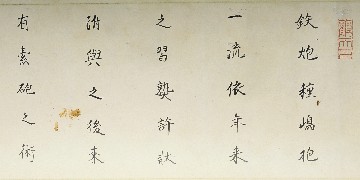 鉄炮種嶋抱
一流依年来
之習熟許状
術與之後来
有素砲之術